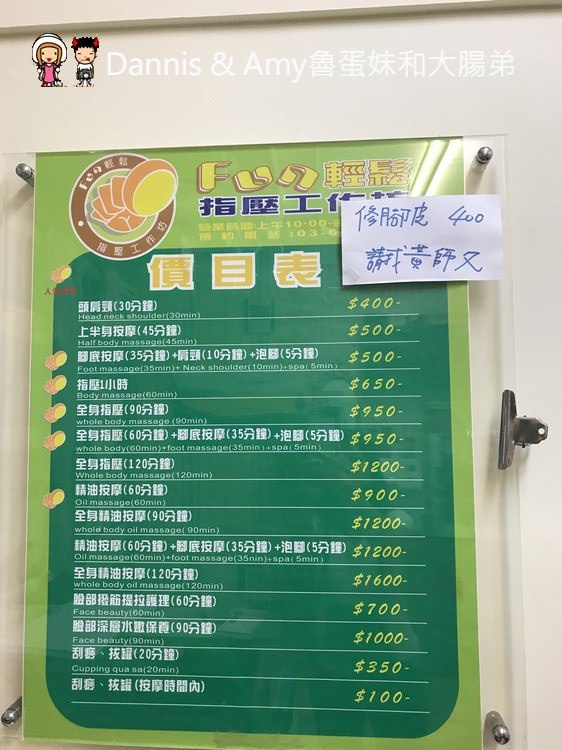 Dannis & Amy魯蛋妹和大腸弟
Fun輕鬆
指壓工作坊
Fun輕鬆
指壓工作坊
營業時間:上午10:00-
預約電話:03-6
修腳皮 400
請找黃師父
價目表
頭肩頸(30分鐘) $400-
Head neck shoulder(30min)
上半身按摩(45分鐘) $500-
Half body massage(45min)
腳底按摩(35分鐘)+肩頸(10分鐘)+泡腳(5分鐘) $500-
Foot massage(35min)+ Neck shoulder(10min)+spa( 5min)
指壓1小時 $650-
Body massage(60min)
全身指壓(90分鐘) $950-
whole body massage (90min)
全身指壓(60分鐘)+腳底按摩(35分鐘)+泡腳(5分鐘) $950-
whole body(60min)+foot massage(35min)+spa( 5min)
全身指壓(120分鐘) $1200-
Whole body massage(120min)
精油按摩(60分鐘) $900-
Oil massage(60min)
全身精油按摩(90分鐘) $1200-
whole body oil massage( 90min)
精油按摩(60分鐘)+腳底按摩(35分鐘)+泡腳(5分鐘) $1200-
Oil massage(60min)+foot massage(35min)+spa( 5min)
全身精油按摩(120分鐘) $1600-
whole body oil massage(120min)
臉部撥筋提拉護理(60分鐘) $700-
Face beauty(60min)
臉部深層水嫩保養(90分鐘) $1000-
Face beauty(90min)
刮痧、拔罐(20分鐘) $350-
Cupping qua sa(20min)
刮痧、拔罐(按摩時間內) $100-